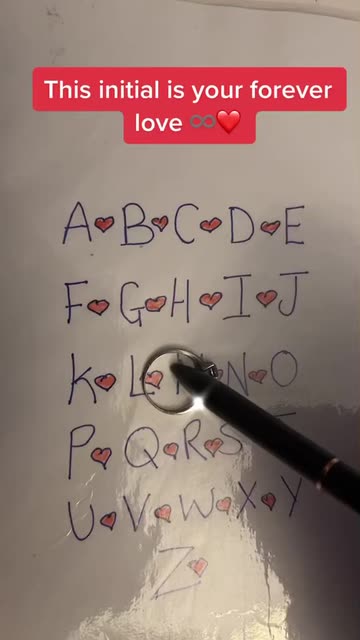 This initial is your forever
love ♾️❤️
A B C D E
F G H I J
K L N O
P Q R S
U V W X Y
Z